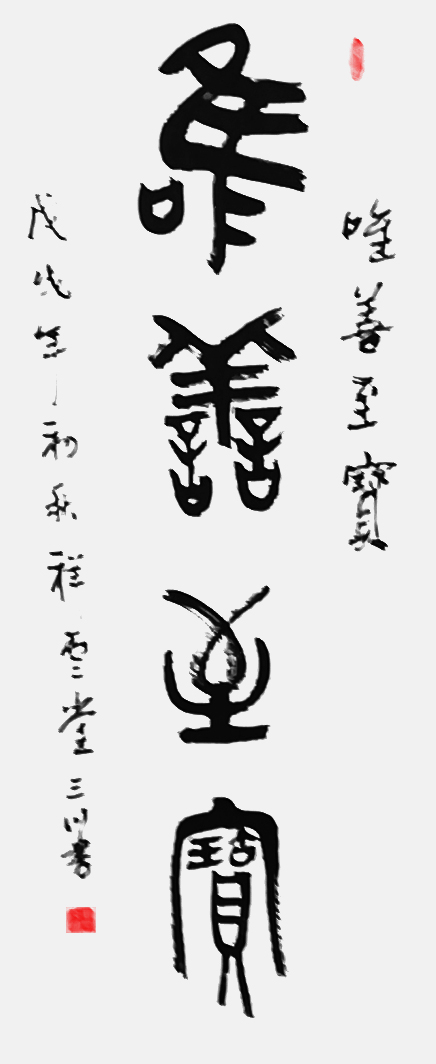 唯善至寶
唯善至寶
戊戌年初秋祥雲堂三川書